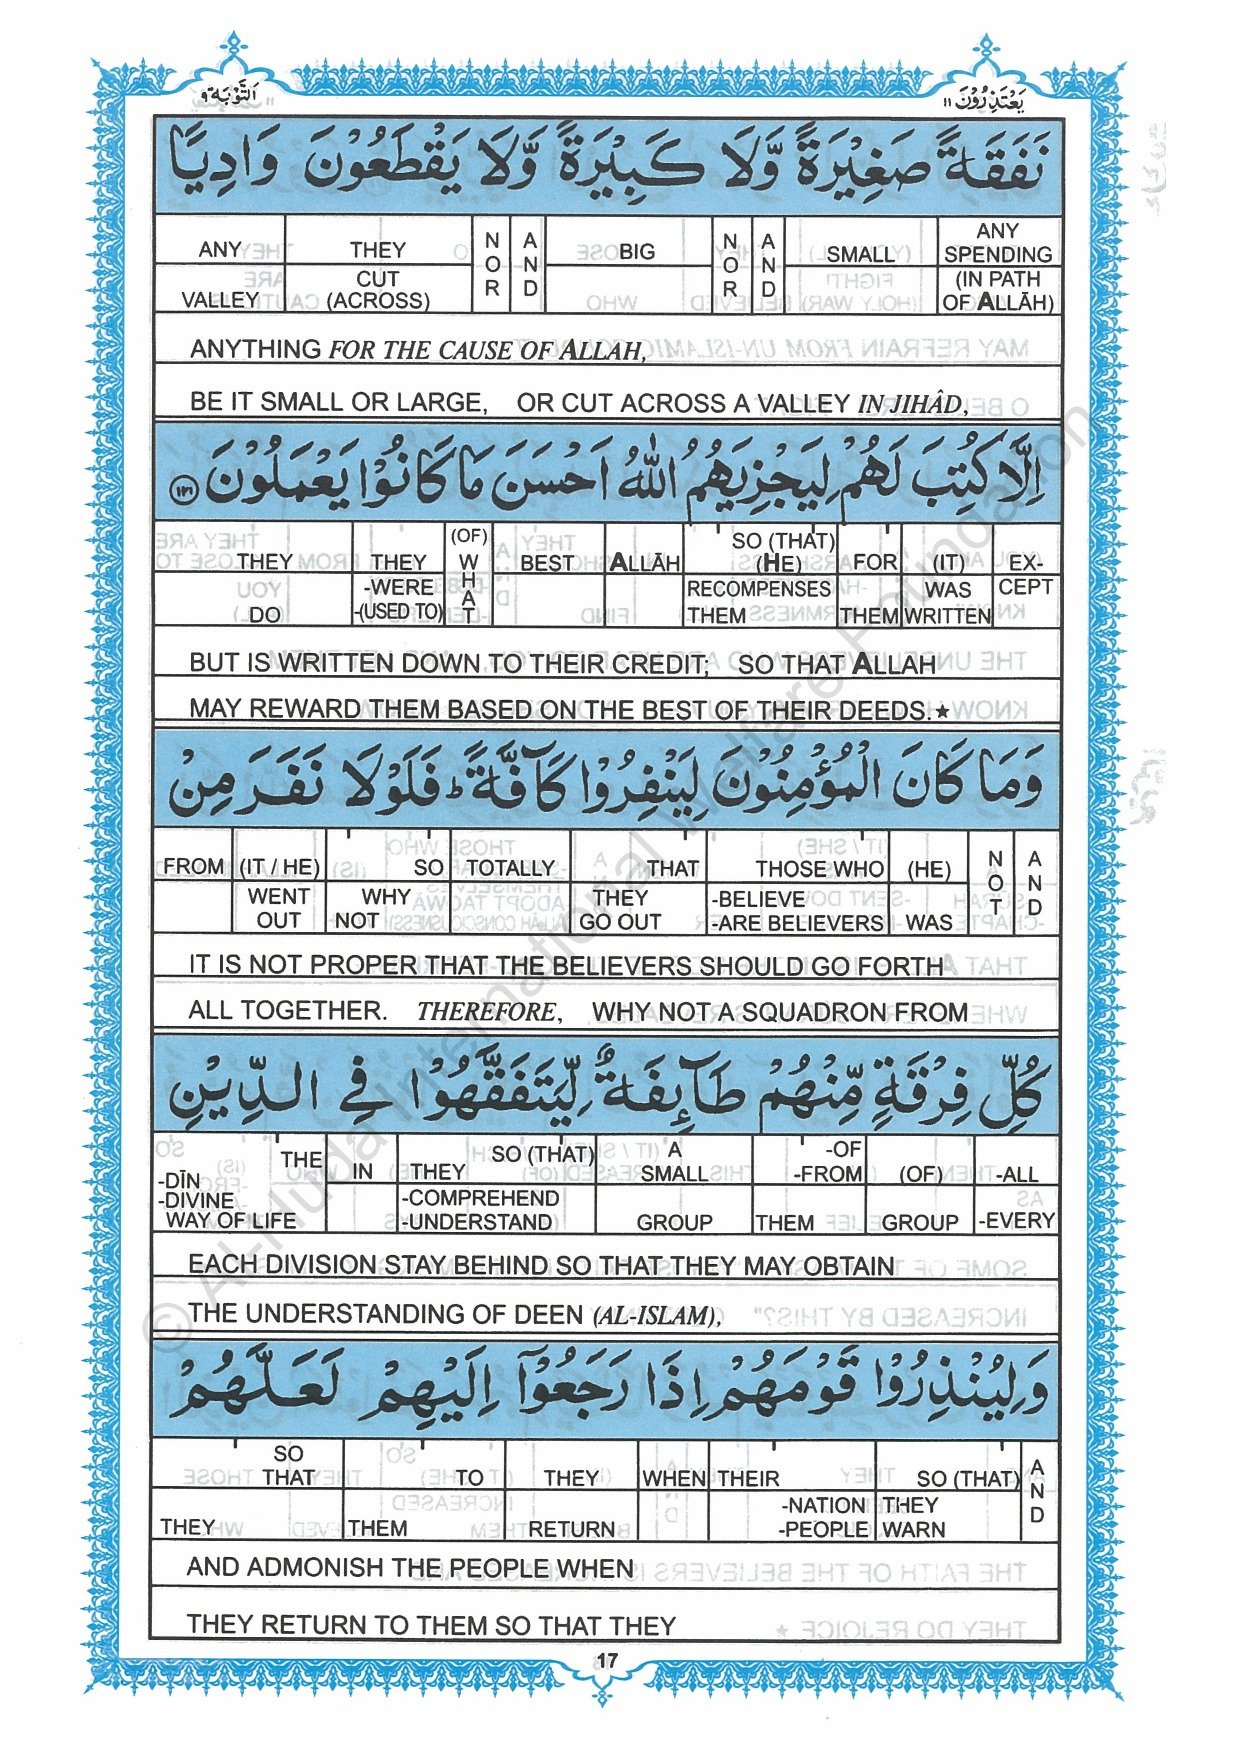 يَعْتَذِرُوْنَ ۱۱
اَلتَّوْبَة ۹
نَفَقَةً صَغِيْرَةً وَّلَا كَبِيْرَةً وَّلَا يَقْطَعُوْنَ وَادِيًا
ANY SPENDING (IN PATH OF ALLĀH) | SMALL | AND | NOR | BIG | AND | NOR | THEY CUT (ACROSS) | ANY VALLEY
ANYTHING FOR THE CAUSE OF ALLAH,
BE IT SMALL OR LARGE, OR CUT ACROSS A VALLEY IN JIHÂD,
اِلَّا كُتِبَ لَهُمْ لِيَجْزِيَهُمُ اللّٰهُ اَحْسَنَ مَا كَانُوْا يَعْمَلُوْنَ ۝۱۲۱
EX-CEPT | (IT) WAS WRITTEN | FOR THEM | SO (THAT) (HE) RECOMPENSES THEM | ALLĀH | BEST | (OF) WHAT | THEY -WERE -(USED TO) | THEY DO
BUT IS WRITTEN DOWN TO THEIR CREDIT; SO THAT ALLAH
MAY REWARD THEM BASED ON THE BEST OF THEIR DEEDS.★
وَمَا كَانَ الْمُؤْمِنُوْنَ لِيَنْفِرُوْا كَآفَّةً ؕ فَلَوْلَا نَفَرَ مِنْ
AND | NOT | (HE) WAS | THOSE WHO -BELIEVE -ARE BELIEVERS | THAT THEY GO OUT | TOTALLY | SO WHY NOT | (IT / HE) WENT OUT | FROM
IT IS NOT PROPER THAT THE BELIEVERS SHOULD GO FORTH
ALL TOGETHER. THEREFORE, WHY NOT A SQUADRON FROM
كُلِّ فِرْقَةٍ مِّنْهُمْ طَآئِفَةٌ لِّيَتَفَقَّهُوْا فِي الدِّيْنِ
-ALL -EVERY | (OF) GROUP | -OF -FROM THEM | A SMALL GROUP | SO (THAT) THEY -COMPREHEND -UNDERSTAND | IN | THE -DĪN -DIVINE WAY OF LIFE
EACH DIVISION STAY BEHIND SO THAT THEY MAY OBTAIN
THE UNDERSTANDING OF DEEN (AL-ISLAM),
وَلِيُنْذِرُوْا قَوْمَهُمْ اِذَا رَجَعُوْٓا اِلَيْهِمْ لَعَلَّهُمْ
AND | SO (THAT) THEY WARN | THEIR -NATION -PEOPLE | WHEN | THEY RETURN | TO THEM | SO THAT THEY
AND ADMONISH THE PEOPLE WHEN
THEY RETURN TO THEM SO THAT THEY
17
© Al-Huda International Welfare Foundation